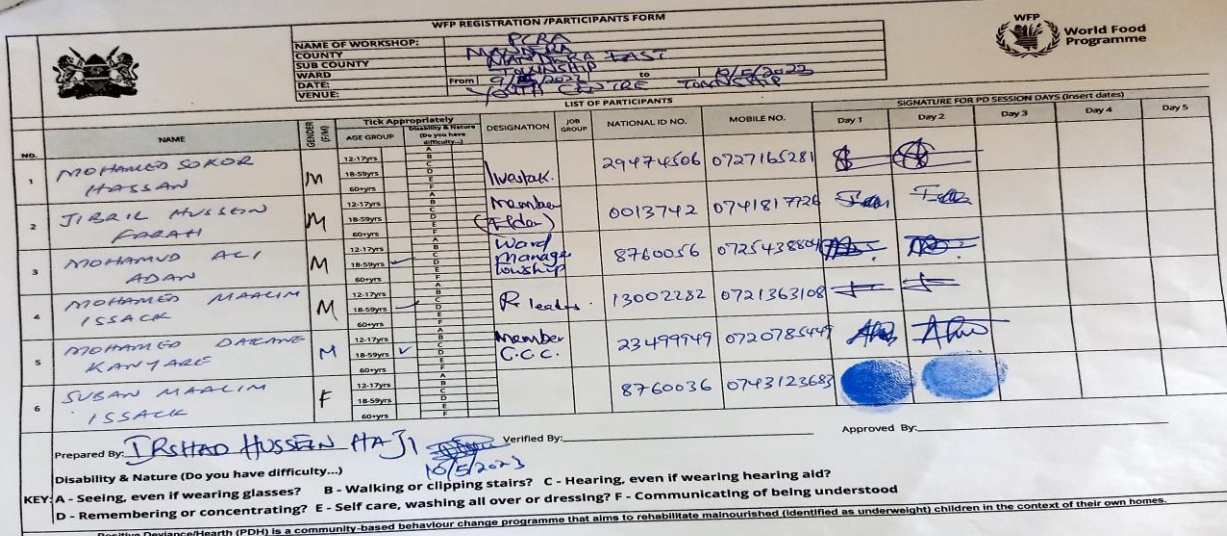 WFP REGISTRATION /PARTICIPANTS FORM
WFP
World Food
Programme
NAME OF WORKSHOP: PCRA
COUNTY MANDERA
SUB COUNTY MANDERA EAST
WARD TOWNSHIP
DATE: From 9/5/2023 to 10/5/2023
VENUE: YOUTH CENTRE TOWNSHIP
LIST OF PARTICIPANTS
SIGNATURE FOR PD SESSION DAYS (Insert dates)
NO. NAME GENDER (F/M) Tick Appropriately AGE GROUP Disability & Nature (Do you have difficulty...) DESIGNATION JOB GROUP NATIONAL ID NO. MOBILE NO. Day 1 Day 2 Day 3 Day 4 Day 5
1 MOHAMED SOKOR HASSAN M 12-17yrs 18-59yrs 60+yrs A B C D E F 29474506 0727165281
2 JIBRIL HUSSEIN FARAH M 12-17yrs 18-59yrs 60+yrs A B C D E F Member (Elder) 0013742 0741817726
3 MOHAMUD ALI ADAN M 12-17yrs 18-59yrs ✓ 60+yrs A B C D E F Ward manage township 8760056 0725438804
4 MOHAMED MAALIM ISSACK M 12-17yrs 18-59yrs 60+yrs A B C D E F R leader. 13002282 0721363108
5 MOHAMED DAKANE KANYARE M 12-17yrs 18-59yrs ✓ 60+yrs A B C D E F Member C.C.C. 23499949 0720785449
6 SUBAN MAALIM ISSACK F 12-17yrs 18-59yrs 60+yrs A B C D E F 8760036 0743123683
Prepared By: IRSHAD HUSSEIN HAJI Verified By: Approved By:
10/5/2023
Disability & Nature (Do you have difficulty...)
KEY: A - Seeing, even if wearing glasses? B - Walking or clipping stairs? C - Hearing, even if wearing hearing aid?
D - Remembering or concentrating? E - Self care, washing all over or dressing? F - Communicating of being understood
Positive Deviance/Hearth (PDH) is a community-based behaviour change programme that aims to rehabilitate malnourished (identified as underweight) children in the context of their own homes.